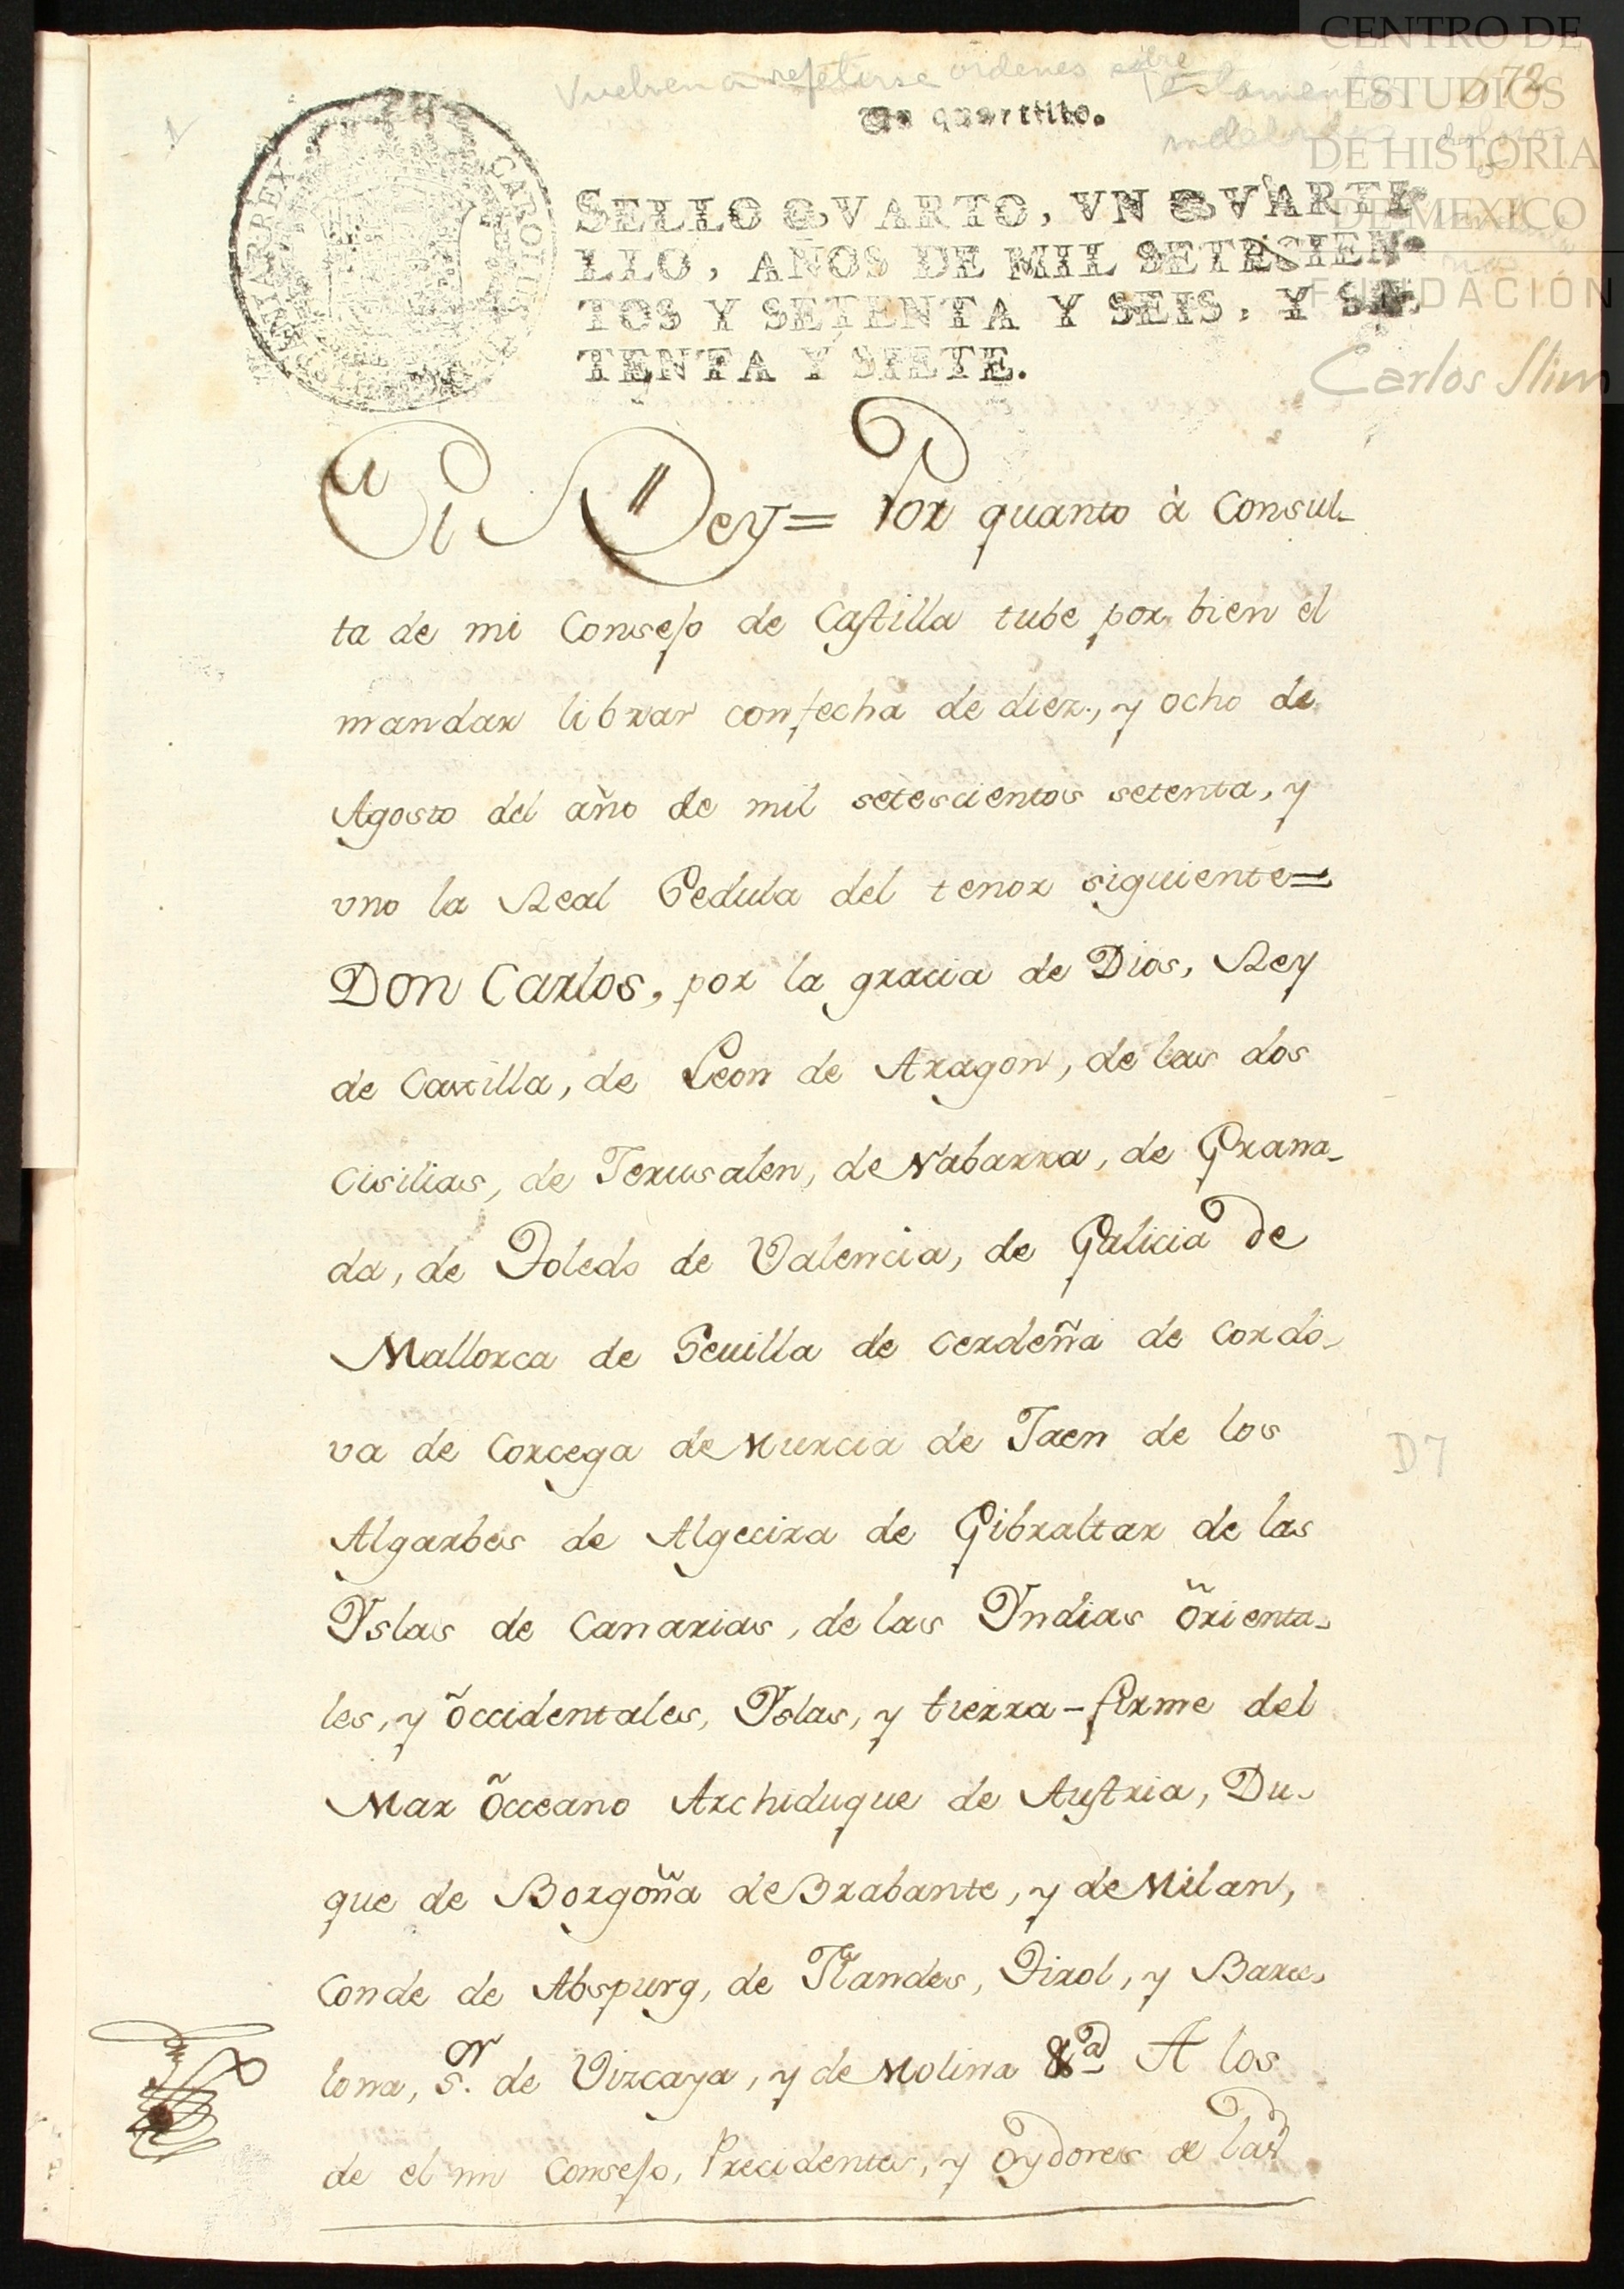 CENTRO DE
ESTUDIOS
DE HISTORIA
DE MEXICO
FUNDACIÓN
Carlos Slim
72
Vuelven a repetirse ordenes sobre
Un quartillo.
CAROLUS
REX
SELLO QVARTO, VN QVARTI-
LLO, AÑOS DE MIL SETESCIEN-
TOS Y SETENTA Y SEIS, Y SE-
TENTA Y SIETE.
El Rey = Por quanto à consul-
ta de mi Consejo de Castilla tube por bien el
mandar librar con fecha de diez, y ocho de
Agosto del año de mil setescientos setenta, y
vno la Real Cedula del tenor siguiente=
Don Carlos, por la gracia de Dios, Rey
de Castilla, de Leon de Aragon, de las dos
Cisilias, de Jerusalen, de Nabarra, de Grana-
da, de Toledo de Valencia, de Galicia de
Mallorca de Sevilla de Cerdeña de Cordo-
va de Corcega de Murcia de Jaen de los
Algarbes de Algecira de Gibraltar de las
Yslas de Canarias, de las Yndias Orienta-
les, y Occidentales, Yslas, y tierra-firme del
Mar Occeano Archiduque de Austria, Du-
que de Borgoña de Brabante, y de Milan,
Conde de Abspurg, de Flandes, Tirol, y Barce-
lona, S.or de Vizcaya, y de Molina &a A los
de el mi Consejo, Precidentes, y Oydores de las
D7